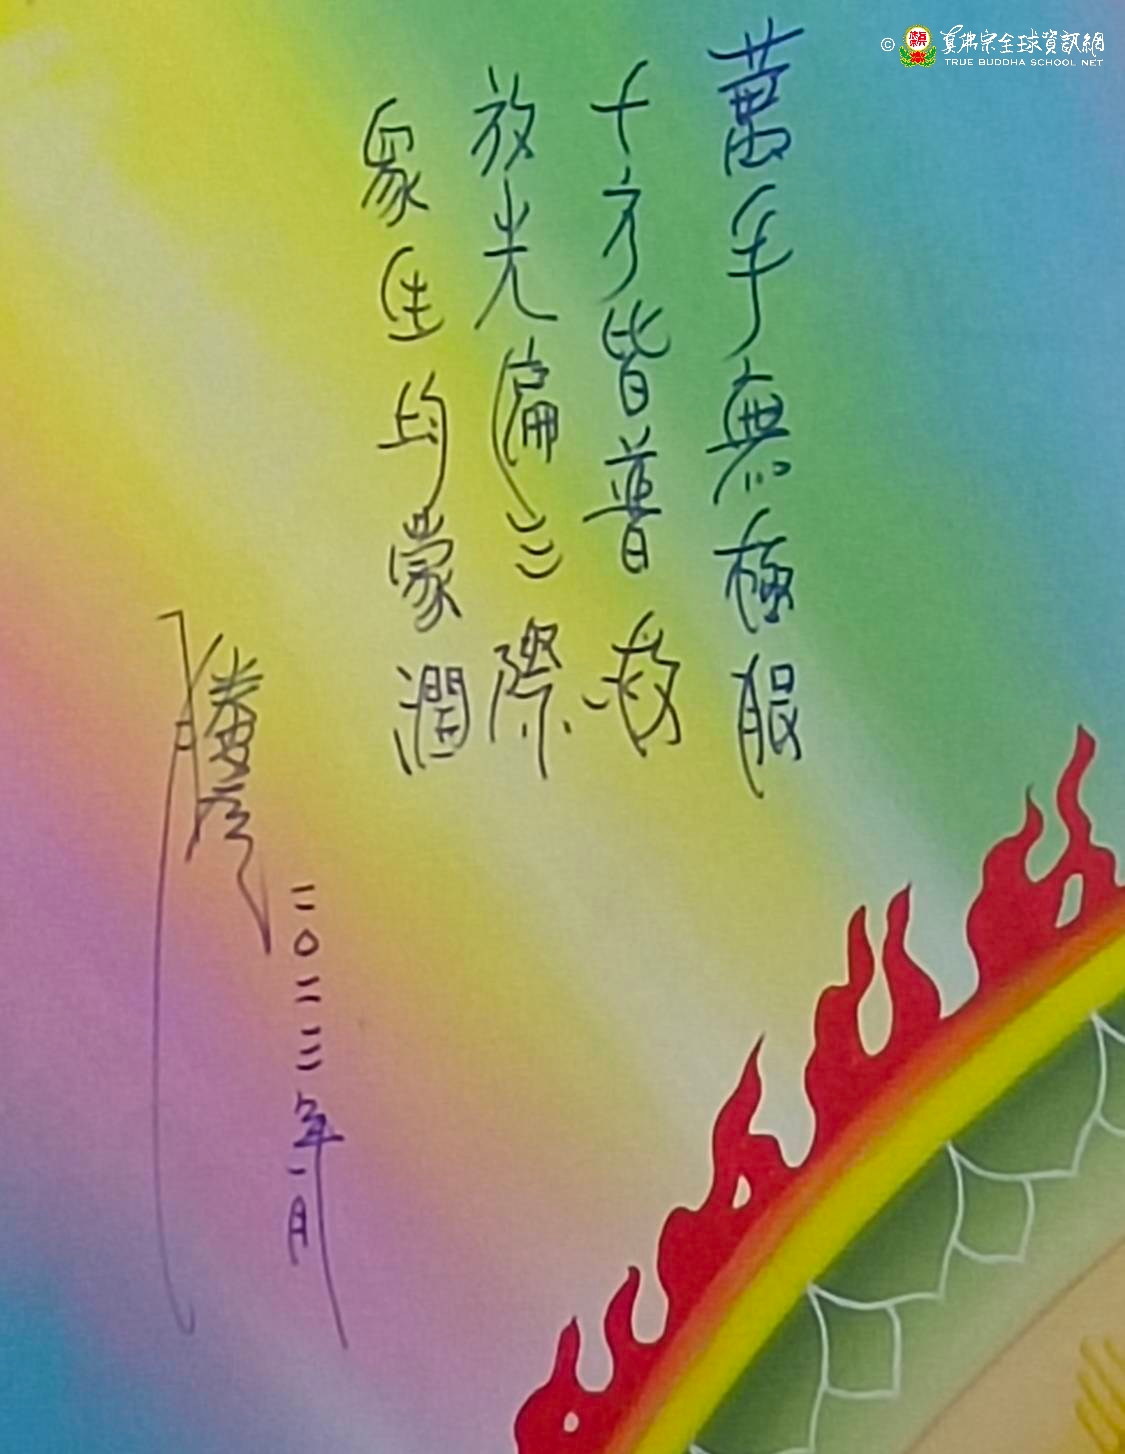 萬手無極眼
十方皆普救
放光遍三際
眾生均蒙潤
勝彥
二〇二三年一月
© 真佛宗全球資訊網
TRUE BUDDHA SCHOOL NET